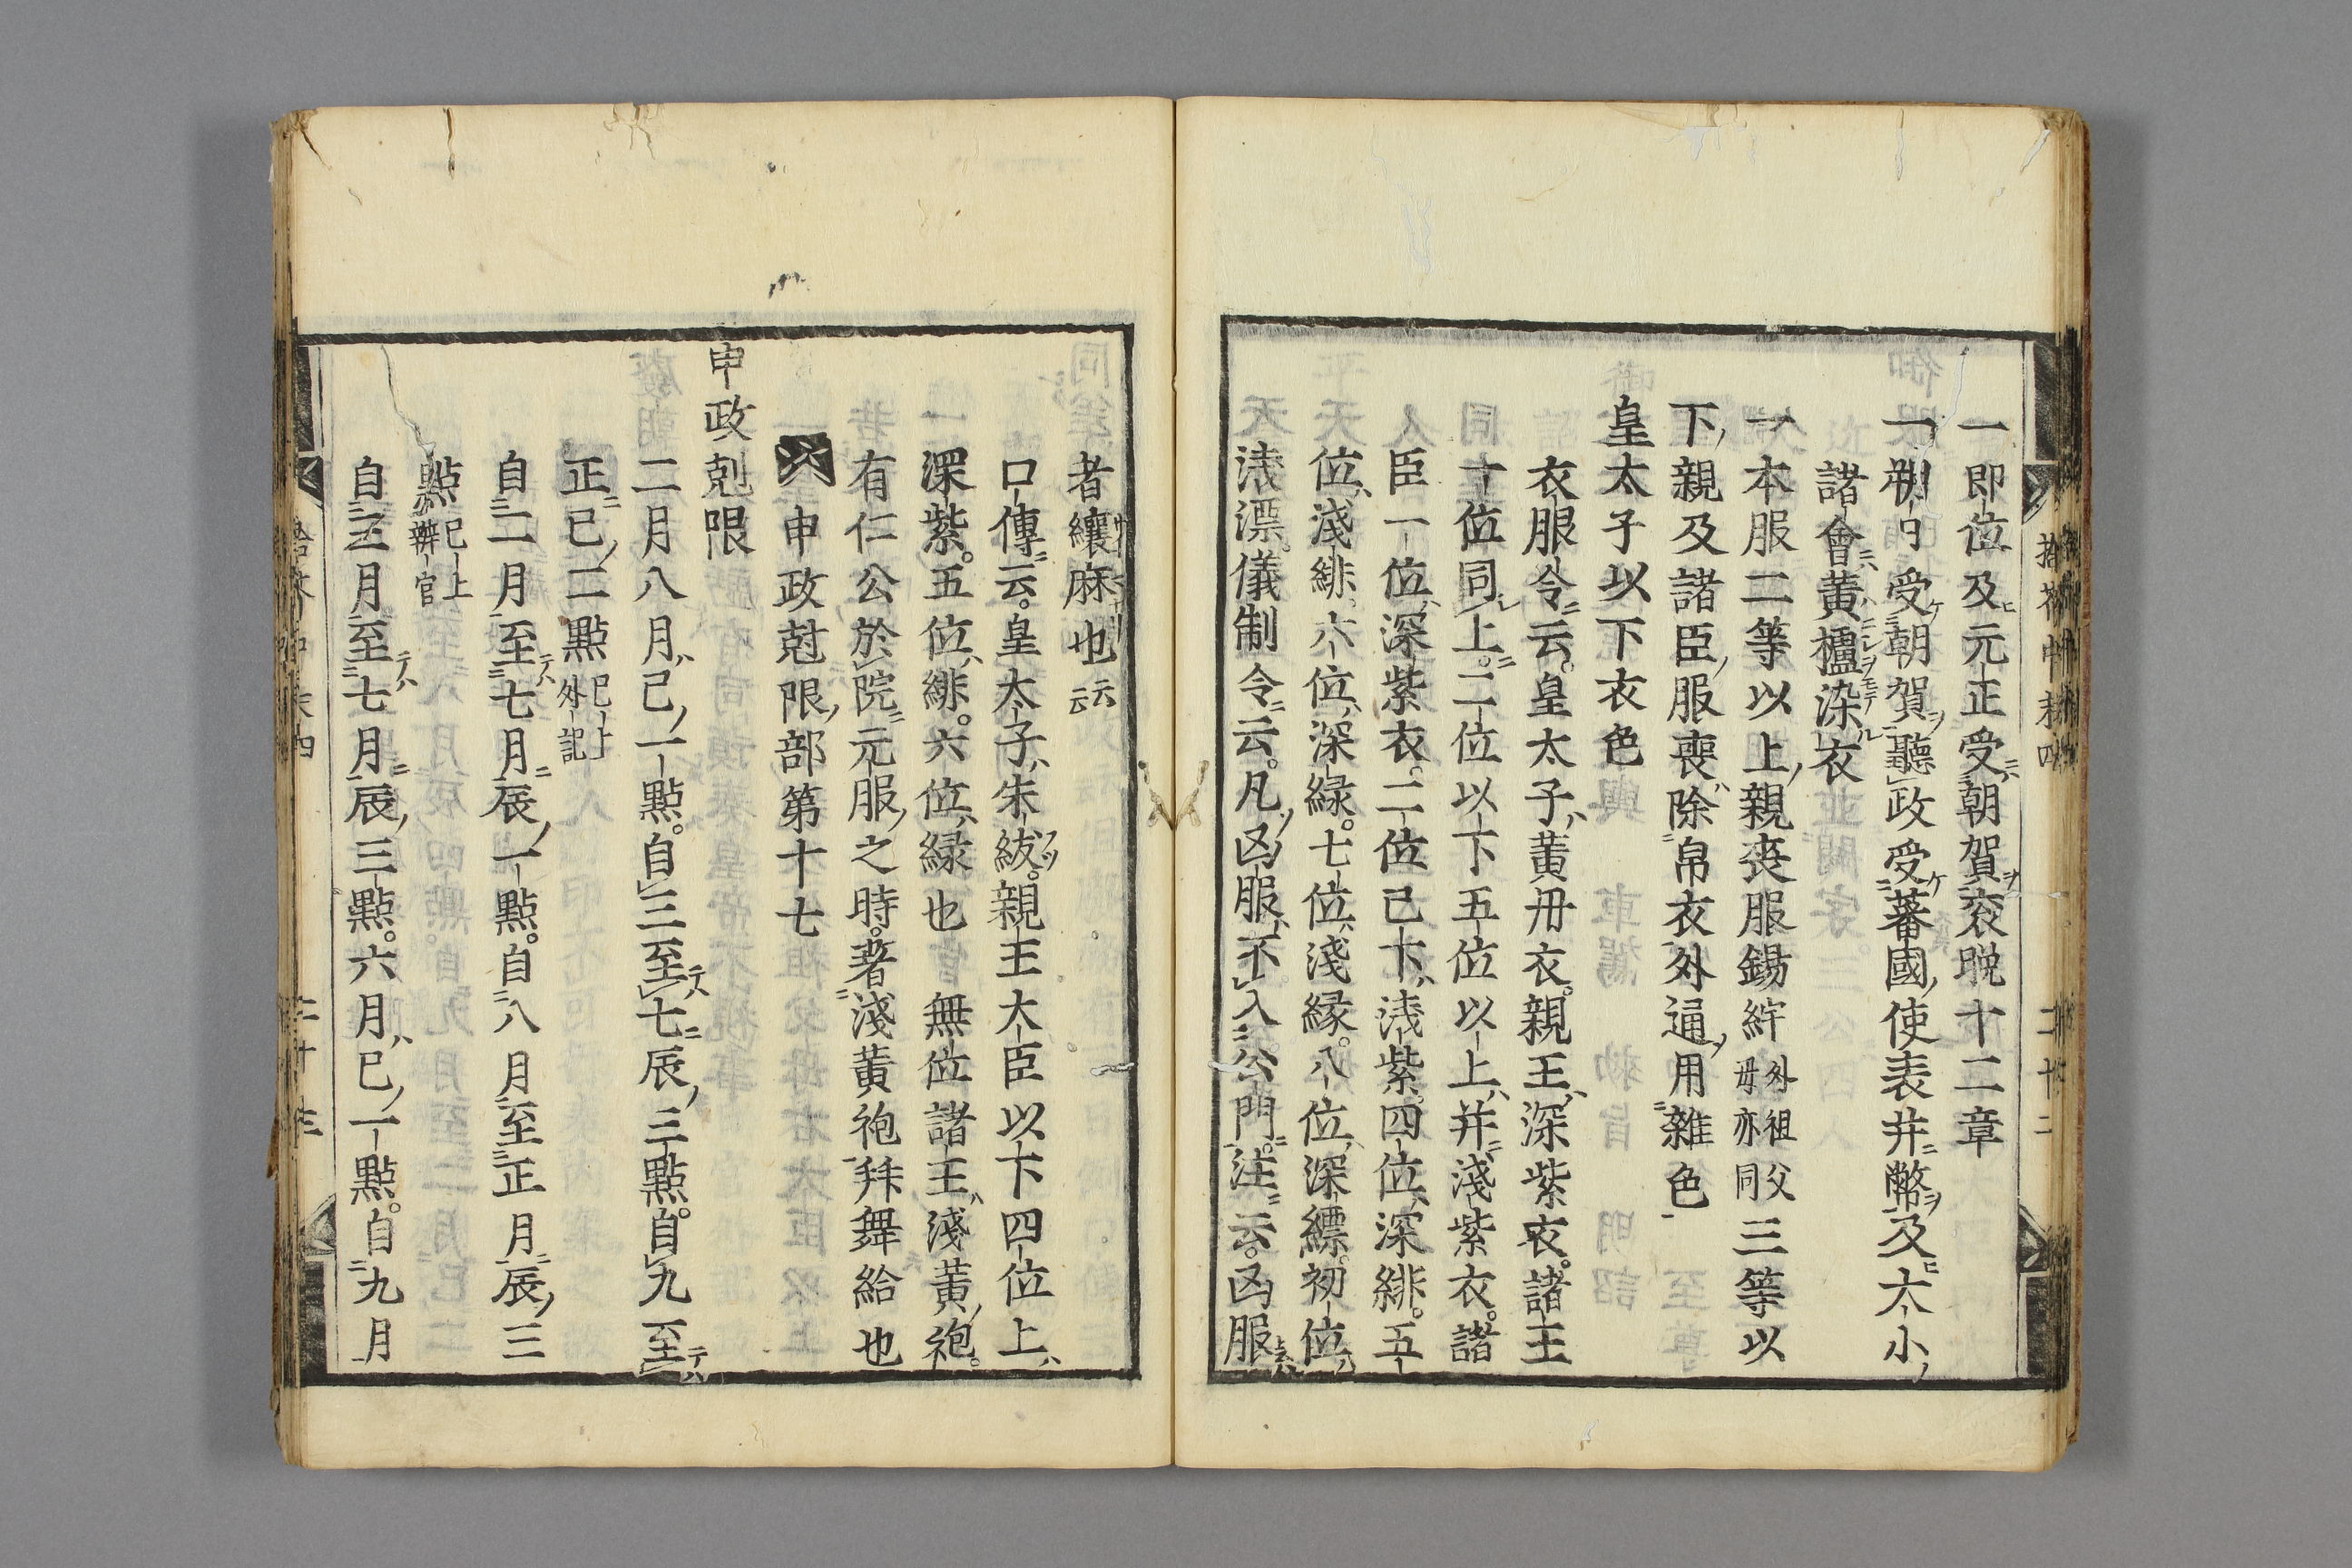 一即位及元正受朝賀衮晃十二章
一朔日受朝賀聽政受蕃國使表并幣及大小
諸會黃櫨染衣
一本服二等以上親喪服錫紵外祖父母亦同三等以
下親及諸臣服喪除帛衣外通用雜色
皇太子以下衣色
衣服令云皇太子黃丹衣親王深紫衣諸王
一位同上二位以下五位以上并淺紫衣諸
臣一位深紫衣二位已下淺紫四位深緋五
位淺緋六位深緑七位淺緑八位深縹初位
淺漂儀制令云凡凶服不入公門注云凶服
者縗麻也云云
口傳云皇太子朱紱親王大臣以下四位上
深紫五位緋六位緑也無位諸王淺黃袍
有仁公於院元服之時著淺黃袍拜舞給也
六申政尅限部第十七
申政剋限
二月八月巳一點自三至七辰三點自九至
正巳二點巳上外記
自二月至七月辰一點自八月至正月辰三
點巳上辨官
自三月至七月辰三點六月巳一點自九月